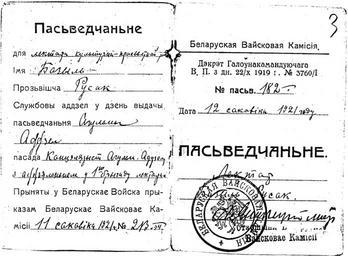 Пасьведчаньне
для лектара
Імя Базыль
Прозьвішча Русак
Службовы аддзел у дзень выдачы
пасьведчаньня Агульны
Аддзел
пасада Канцэлярыст Агульн. Аддзелу
з
Прыняты у Беларускае Войска пры-
казам Беларускае Вайсковае Ка-
місіі 11 сакавіка 1921 № 213
3
Беларуская Вайсковая Камісія,
Дэкрэт Галоўнакамандуючага
В, П. з дн. 22/X 1919 г. № 3760/I
№ пасьв. 182
Дата 12 сакавіка 1921 году
ПАСЬВЕДЧАНЬНЕ.
Лектар
Русак.
БЕЛАРУСКАЯ ВАЙСКОВАЯ
Вайсковае Камісіі